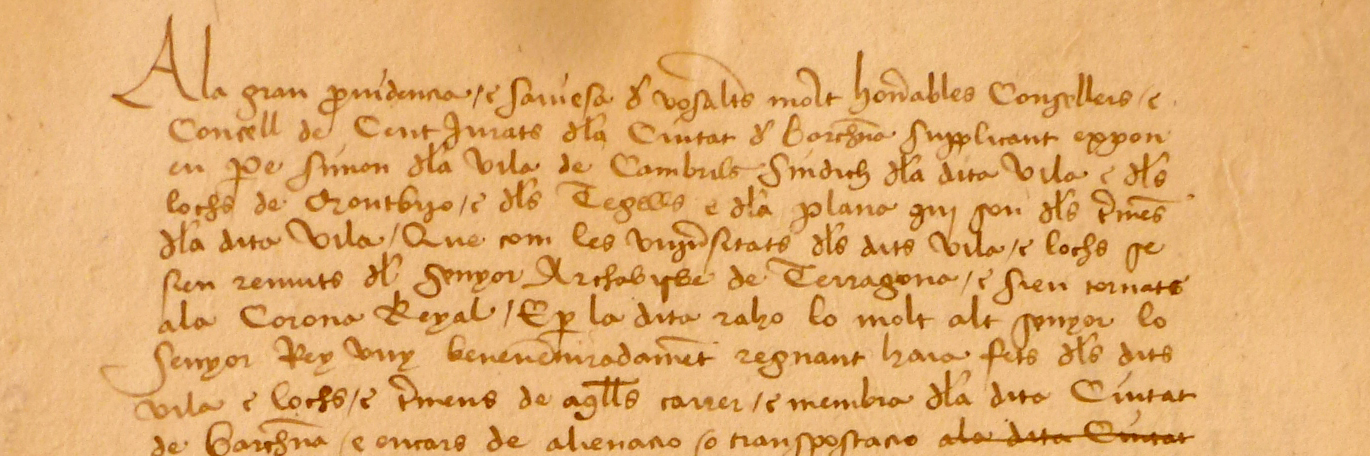 Ala gran ꝓuidencia / e sauiesa ď vosalts molt honͬables Consellers / e
Consell de Cent Jurats dľa Ciutat ď Barchn̄a supplicant expon
en Pe Simon dľa Vila de Cambrils Sindich dľa dita Vila e dľs
lochs de Montbrio / e dľs Tegells e dľa plana qui son dľs t̓mēs
dľa dita Vila / Que com les vniu̓sitats dľs dits Vila / e lochs se
sien remuts dľ senyor Archabisbe de Terragona / e sien tornats
ala Corona Reyal / E ꝑ la dita raho lo molt alt senyor lo
Senyor Rey vuy benenēturadamēt regnant haia fets dľs dits
vila e lochs / e t̓mens de aqłłs carrer / e membra dľa dita Ciutat
de Barchn̄a / e encars de alienacio / o transpostacio ala dita Ciutat